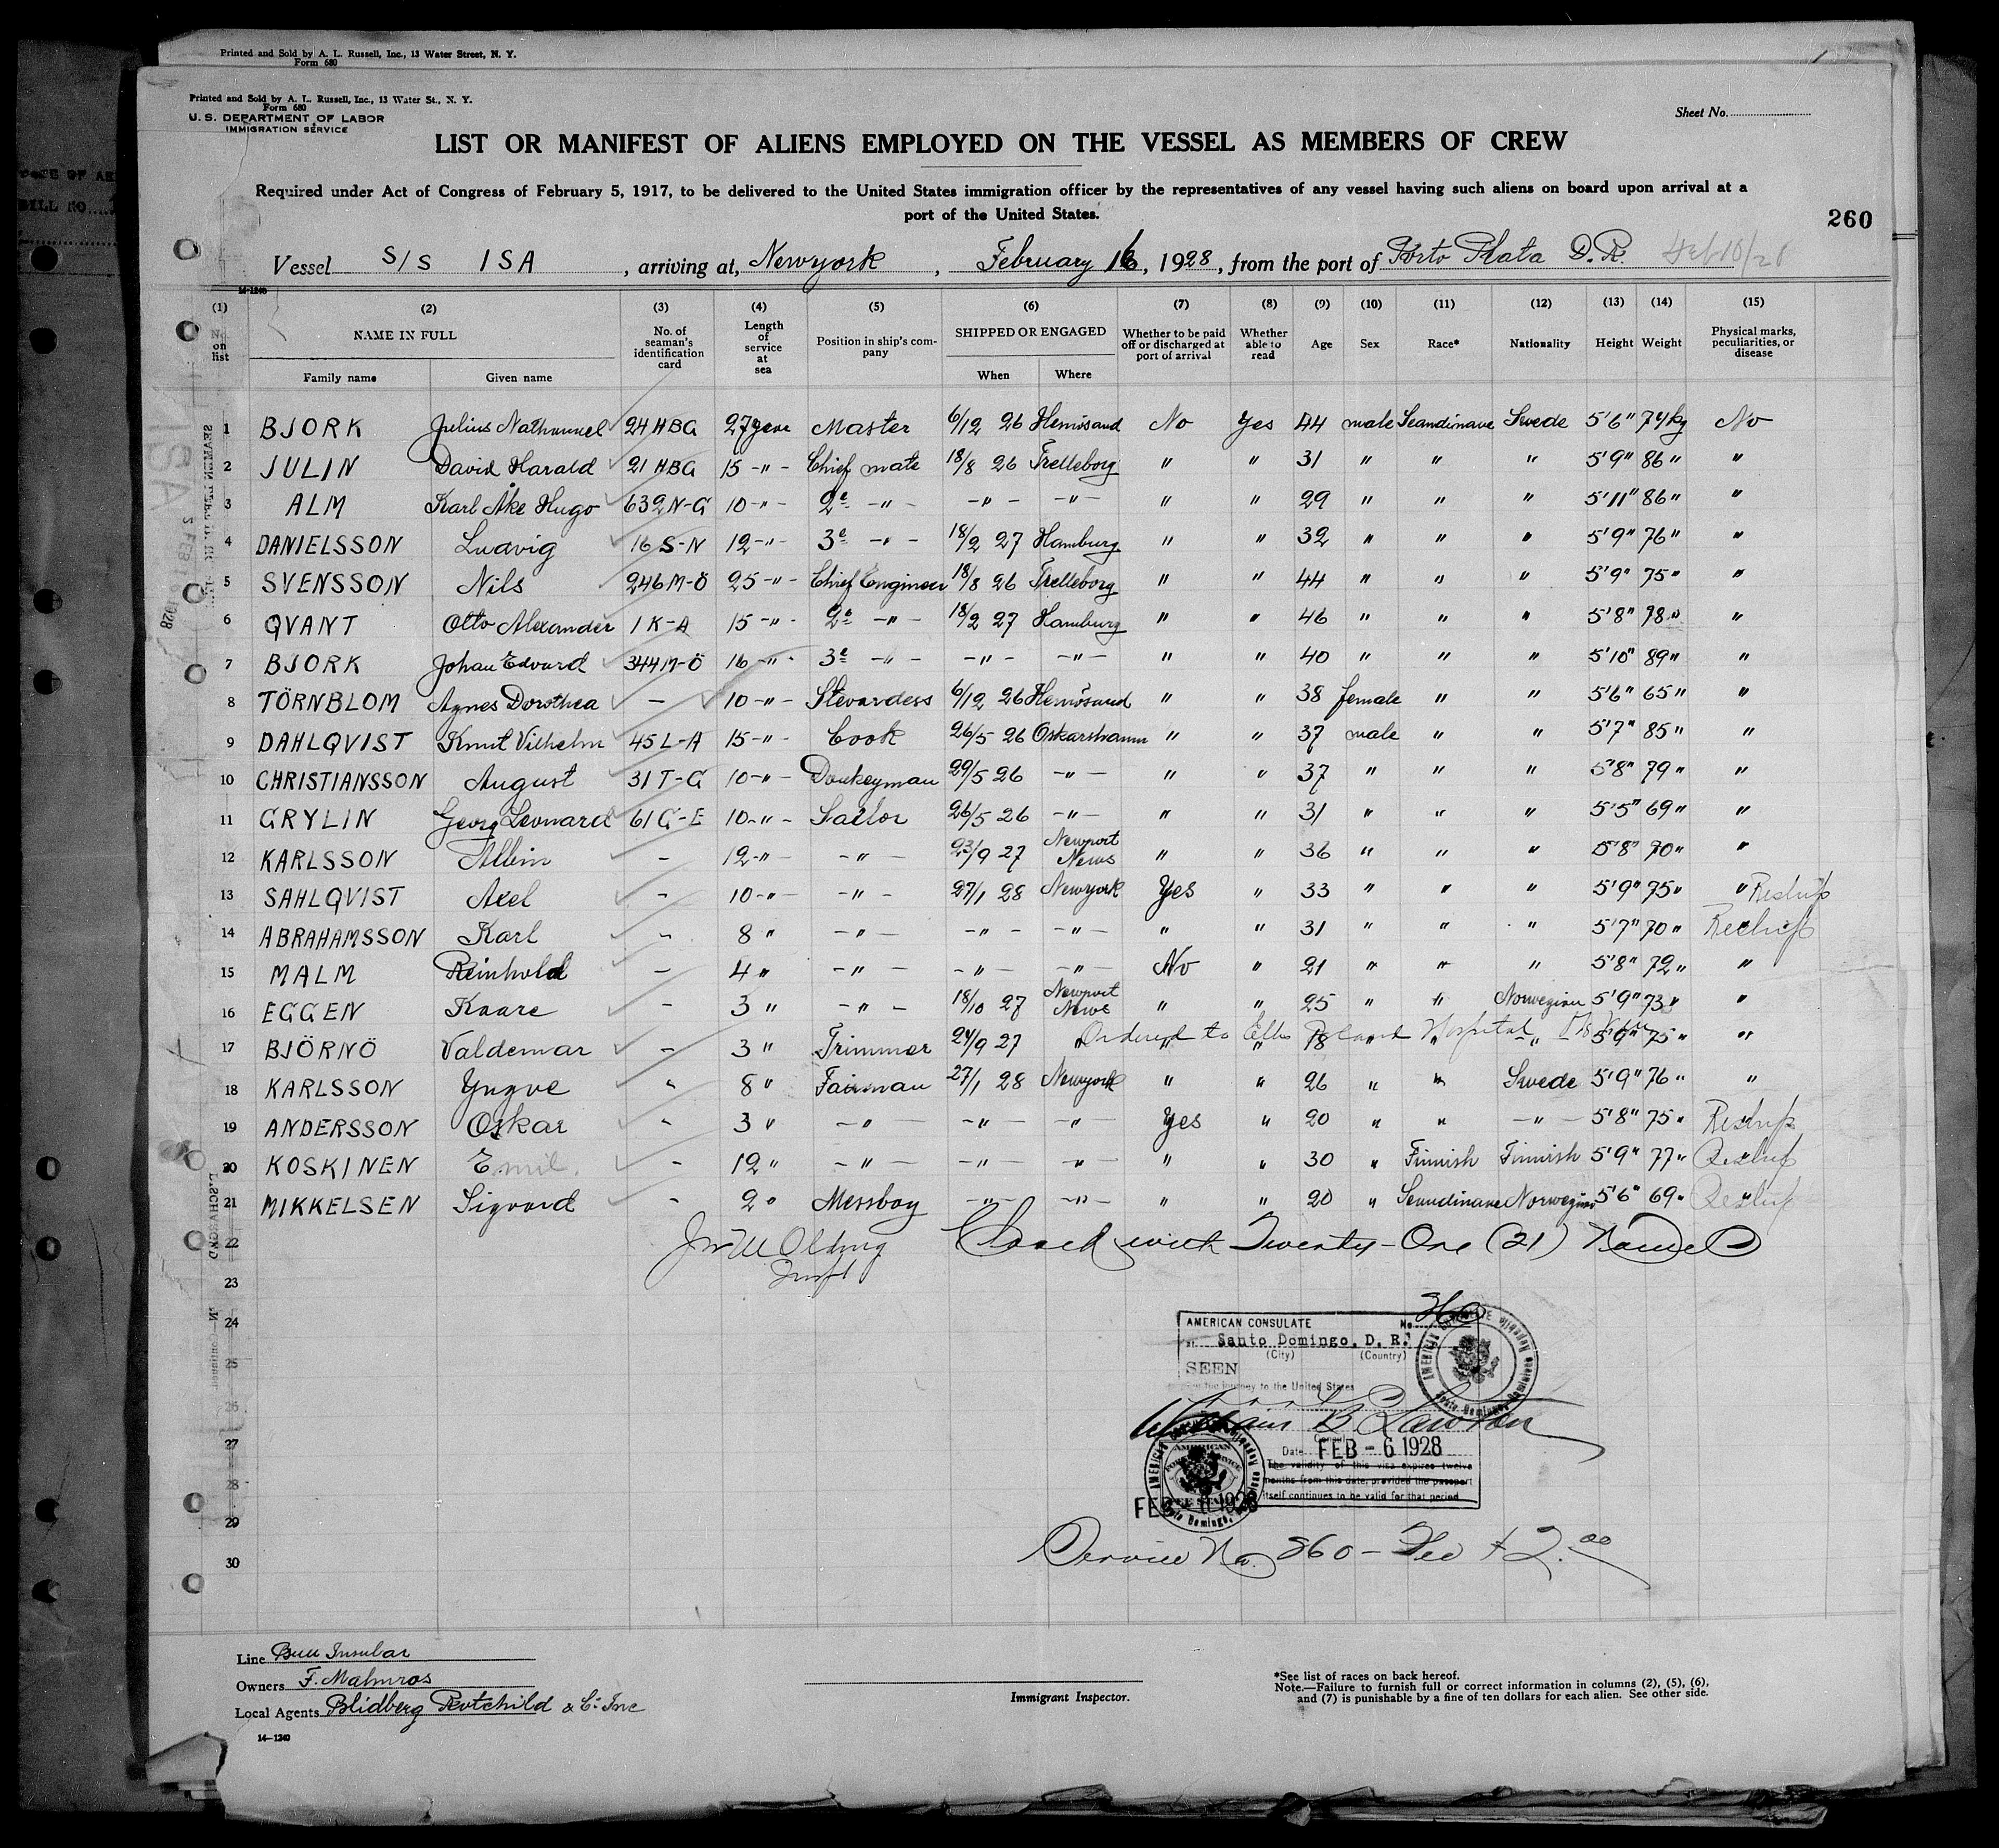 Printed and Sold by A. L. Russell, Inc., 13 Water Street, N. Y.
Form 680
Printed and Sold by A. L. Russell, Inc., 13 Water St., N. Y.
Form 680
U. S. DEPARTMENT OF LABOR
IMMIGRATION SERVICE
Sheet No.
LIST OR MANIFEST OF ALIENS EMPLOYED ON THE VESSEL AS MEMBERS OF CREW
Required under Act of Congress of February 5, 1917, to be delivered to the United States immigration officer by the representatives of any vessel having such aliens on board upon arrival at a
port of the United States.
260
Vessel S/S ISA, arriving at, Newyork, February 16, 1928, from the port of Porto Plata D.R. Feb 10/28
14-1240
(1) (2) (3) (4) (5) (6) (7) (8) (9) (10) (11) (12) (13) (14) (15)
No. on list NAME IN FULL Family name Given name No. of seaman's identification card Length of service at sea Position in ship's company SHIPPED OR ENGAGED When Where Whether to be paid off or discharged at port of arrival Whether able to read Age Sex Race* Nationality Height Weight Physical marks, peculiarities, or disease
1 BJORK Julius Nathanael 24 HBG 27 year Master 6/12 26 Hernösand No Yes 44 male Scandinave Swede 5'6" 74 kg No
2 JULIN David Harald 21 HBG 15 -"- Chief mate 18/8 26 Trelleborg " " 31 " " " 5'9" 86 " "
3 ALM Karl Åke Hugo 632 N-G 10 -"- 2e -"- -"- -"- " " 29 " " " 5'11" 86 " "
4 DANIELSSON Ludvig 16 S-N 12 -"- 3e -"- 18/2 27 Hamburg " " 32 " " " 5'9" 76 " "
5 SVENSSON Nils 246 M-Ö 25 -"- Chief Engineer 18/8 26 Trelleborg " " 44 " " " 5'9" 75 " "
6 QVANT Otto Alexander 1 K-A 15 -"- 2e -"- 18/2 27 Hamburg " " 46 " " " 5'8" 78 " "
7 BJORK Johan Edvard 344 M-Ö 16 -"- 3e -"- -"- -"- " " 40 " " " 5'10" 89 " "
8 TÖRNBLOM Agnes Dorothea - 10 -"- Stevardess 6/12 26 Hernösand " " 38 female " " 5'6" 65 " "
9 DAHLQVIST Knut Vilhelm 45 L-A 15 -"- Cook 26/5 26 Oskarshamn " " 37 male " " 5'7" 85 " "
10 CHRISTIANSSON August 31 T-G 10 -"- Donkeyman 29/5 26 -"- " " 37 " " " 5'8" 79 " "
11 GRYLIN Georg Leonard 61 G-E 10 -"- Sailor 26/5 26 -"- " " 31 " " " 5'5" 69 " "
12 KARLSSON Albin - 12 -"- -"- 23/9 27 Newport News " " 36 " " " 5'8" 70 " "
13 SAHLQVIST Axel - 10 -"- -"- 27/1 28 Newyork Yes " 33 " " " 5'9" 75 " " Reship
14 ABRAHAMSSON Karl - 8 " -"- -"- -"- " " 31 " " " 5'7" 70 " Reship
15 MALM Reinhold - 4 " -"- -"- -"- No " 21 " " " 5'8" 72 " "
16 EGGEN Kaare - 3 " -"- 18/10 27 Newport News " " 25 " " Norwegian 5'9" 73 " "
Ordered to Ellis Island Hospital
17 BJÖRNÖ Valdemar - 3 " Trimmer 24/9 27 " " " 18 " " -"- 5'9" 75 " "
18 KARLSSON Yngve " 8 " Fairman 27/1 28 Newyork " " 26 " " Swede 5'9" 76 " "
19 ANDERSSON Oskar - 3 " -"- -"- -"- Yes " 20 " " -"- 5'8" 75 " Reship
20 KOSKINEN Emil - 12 " -"- -"- -"- " " 30 " Finnish Finnish 5'9" 77 " Reship
21 MIKKELSEN Sigvard - 2 " Messboy -"- -"- " " 20 " Scandinave Norwegian 5'6" 69 " Reship
22 Closed with Twenty-One (21) Names
23
24
25
26
27
28
29
30
360
AMERICAN CONSULATE No.
at Santo Domingo, D. R.
(City) (Country)
SEEN
For the journey to the United States
William B Lawton
Consul
Date FEB - 6 1928
The validity of this visa expires twelve
months from this date, provided the passport
itself continues to be valid for that period
Service No. 360 - Fee $2.00
Line Bull Insular
Owners F. Malmros
Local Agents Blidberg Rotchild & Co Inc
14-1240
Immigrant Inspector.
*See list of races on back hereof.
Note.—Failure to furnish full or correct information in columns (2), (5), (6),
and (7) is punishable by a fine of ten dollars for each alien. See other side.